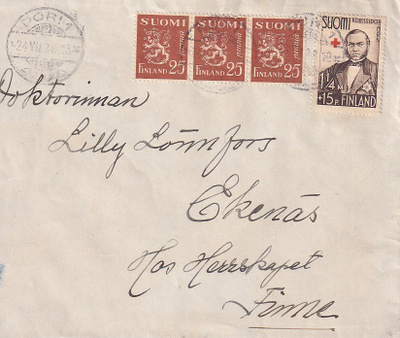 SUOMI
FINLAND 25
SUOMI
FINLAND 25
SUOMI
FINLAND 25
SUOMI
1¼ M
+15 P. FINLAND
Doktorinnan
Lilly Lönnfors
Ekenäs
Hos Herrskapet
Finne